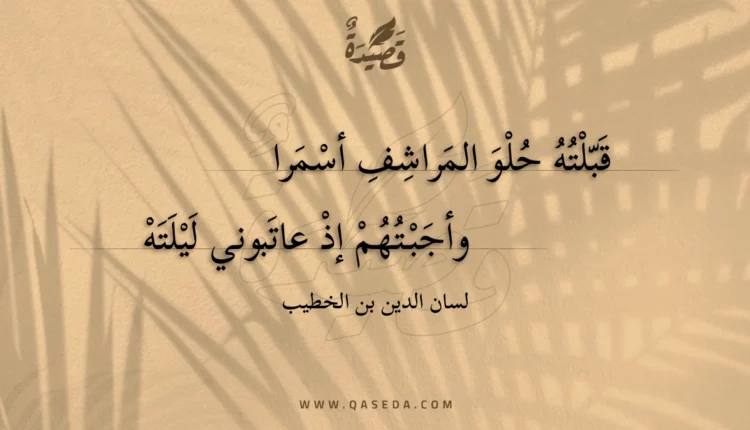 قَصِيْدَةٌ
قَبّلْتُهُ حُلْوَ المَراشِفِ أسْمَرا
وأجَبْتُهُمْ إذْ عاتَبوني لَيْلَتَهْ
لسان الدين بن الخطيب
WWW.QASEDA.COM